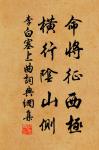 命將征西極
橫行陰山側
李白塞上曲詞典網集